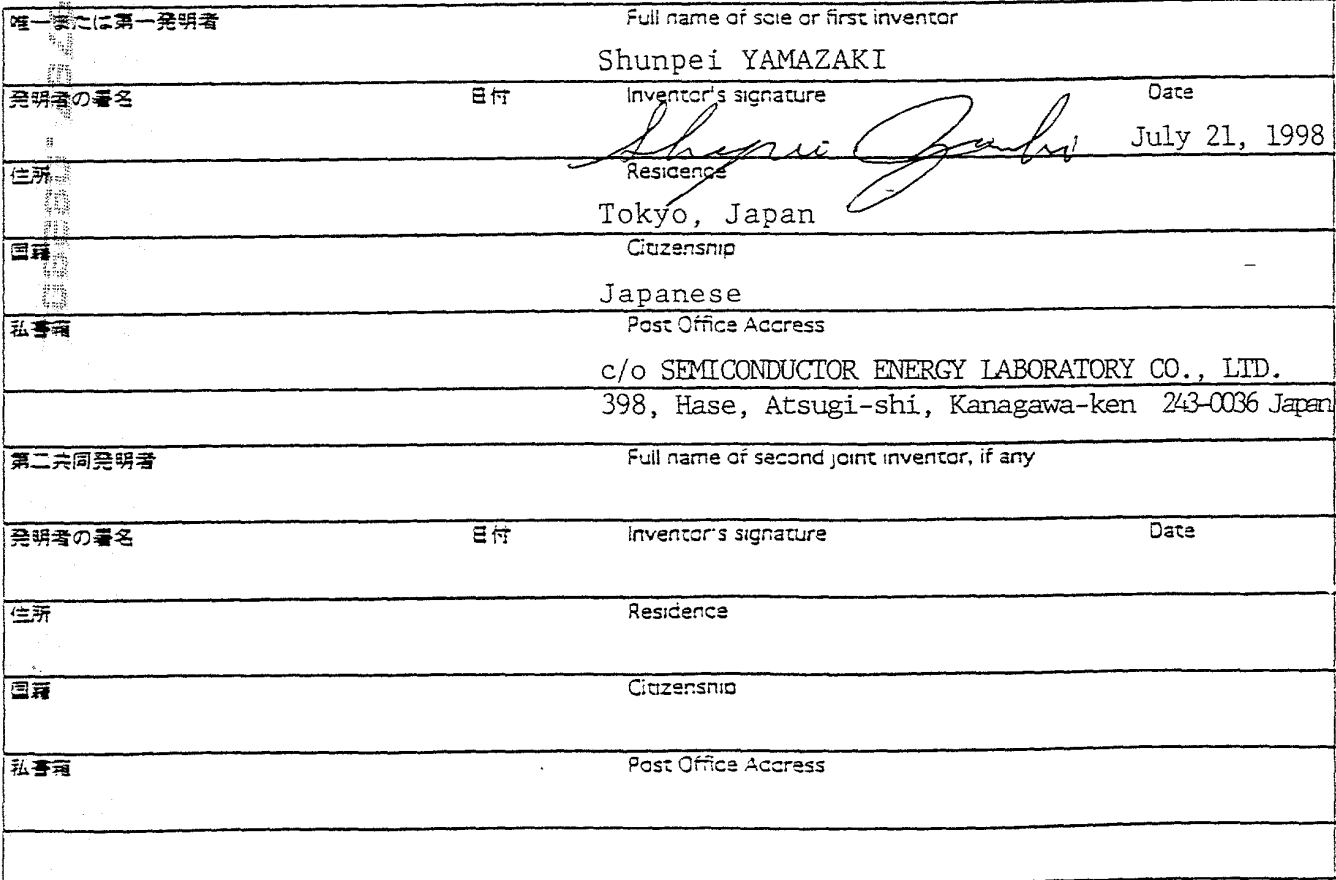 唯一または第一発明者 Full name of sole or first inventor
Shunpei YAMAZAKI
発明者の署名 日付 Inventor's signature Date
July 21, 1998
住所 Residence
Tokyo, Japan
国籍 Citizenship
Japanese
私書箱 Post Office Address
c/o SEMICONDUCTOR ENERGY LABORATORY CO., LTD.
398, Hase, Atsugi-shi, Kanagawa-ken 243-0036 Japan
第二共同発明者 Full name of second joint inventor, if any
発明者の署名 日付 Inventor's signature Date
住所 Residence
国籍 Citizenship
私書箱 Post Office Address